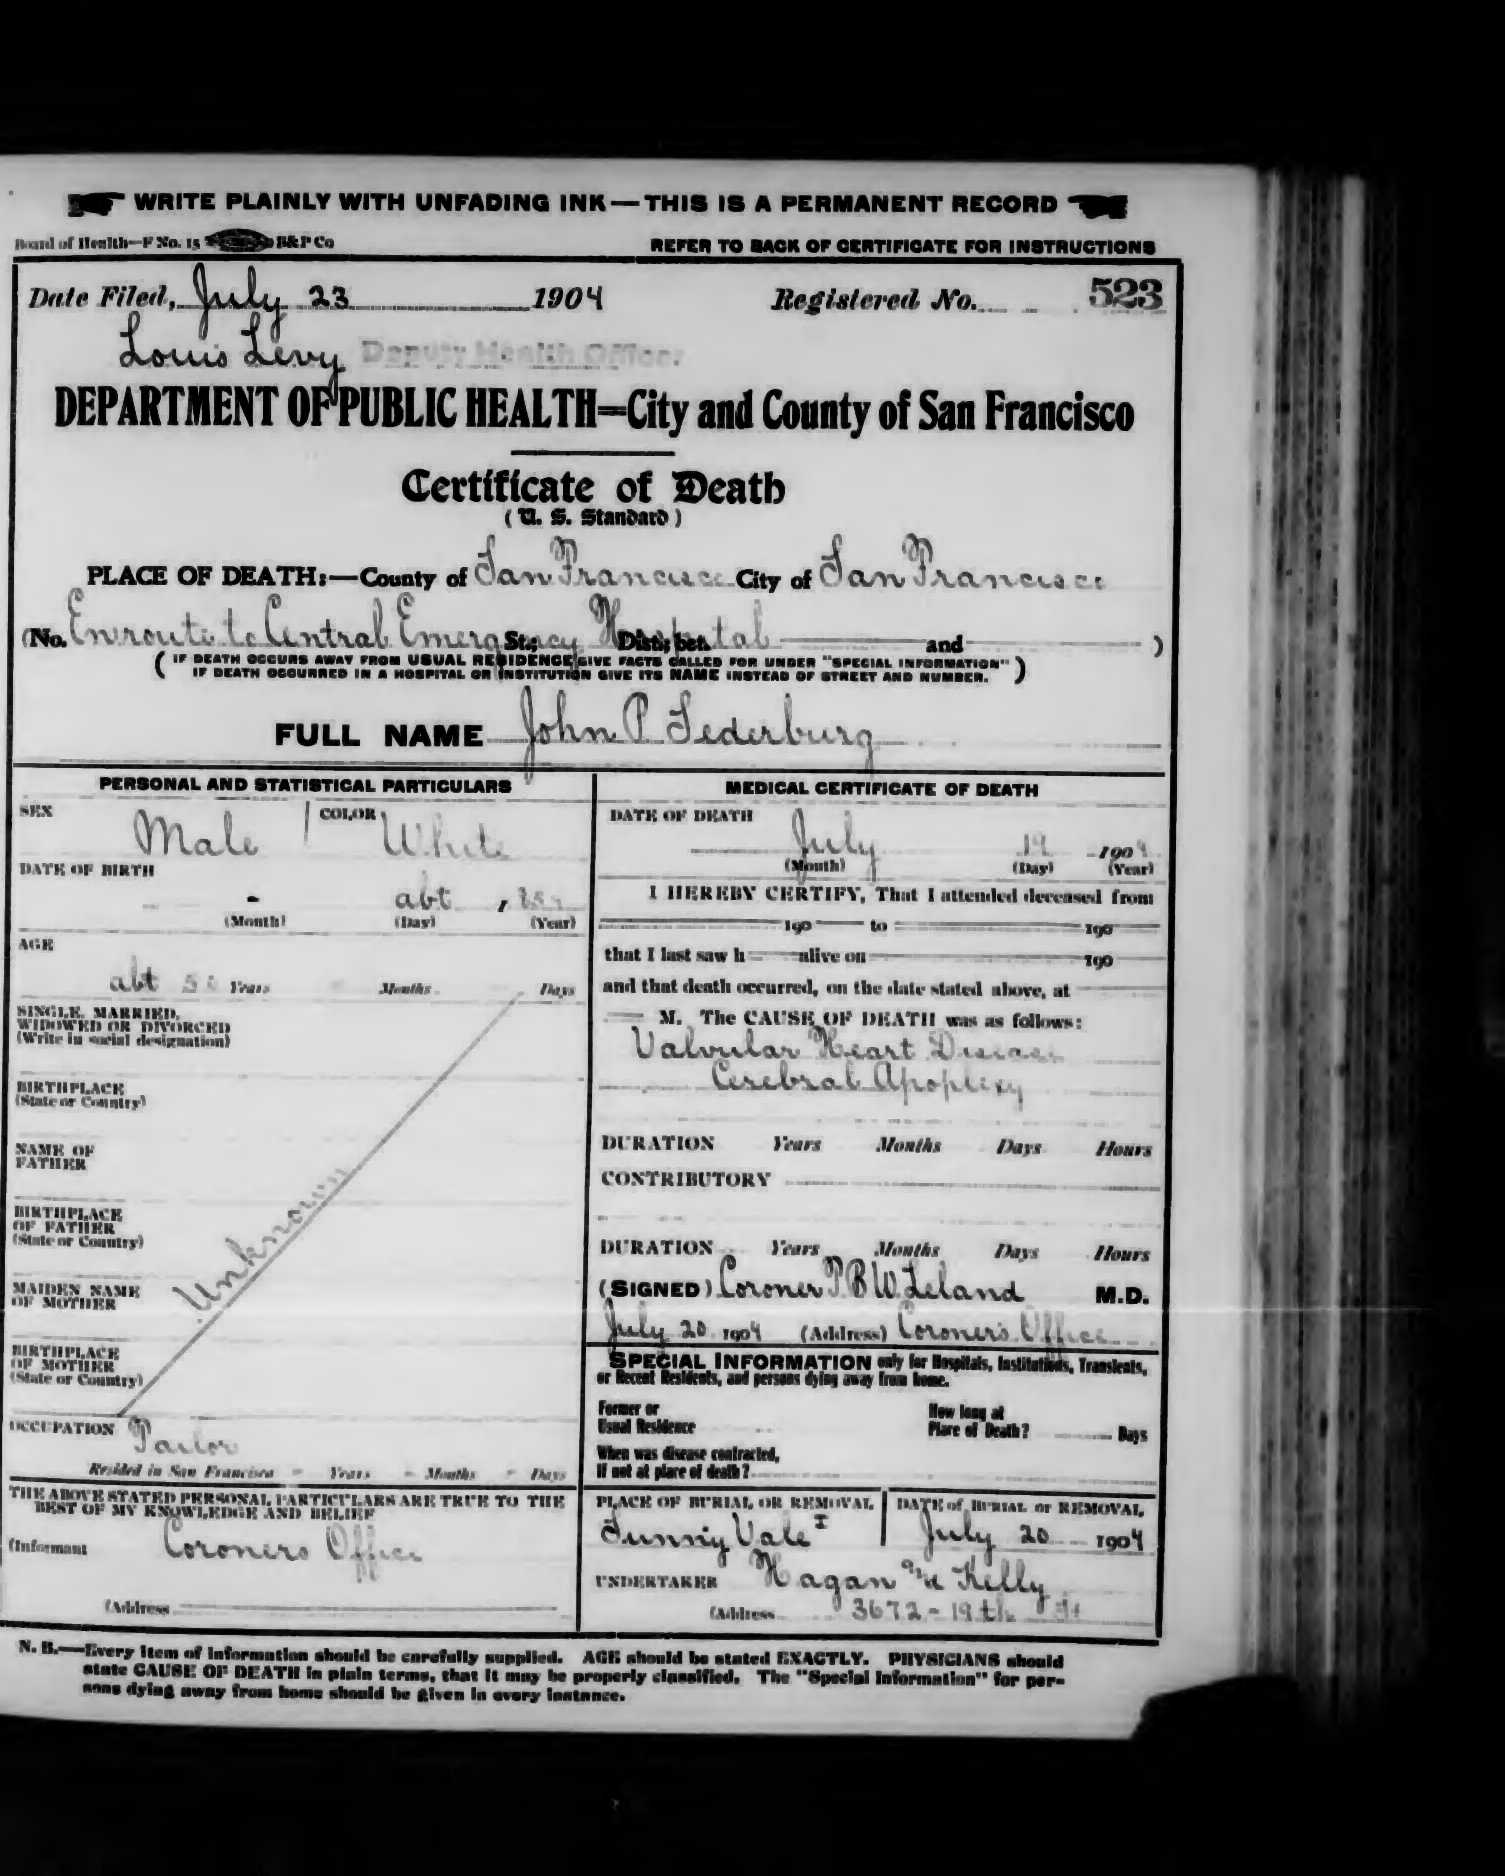 WRITE PLAINLY WITH UNFADING INK — THIS IS A PERMANENT RECORD
Board of Health—F No. 15 B&P Co REFER TO BACK OF CERTIFICATE FOR INSTRUCTIONS
Date Filed, July 23 1904 Registered No. 523
Louis Levy Deputy Health Officer
DEPARTMENT OF PUBLIC HEALTH=City and County of San Francisco
Certificate of Death
( U. S. Standard )
PLACE OF DEATH:—County of San Francisco City of San Francisco
(No. Enroute to Central Emergency Hospital St.; Dist.; bet. and )
( IF DEATH OCCURS AWAY FROM USUAL RESIDENCE GIVE FACTS CALLED FOR UNDER "SPECIAL INFORMATION" )
IF DEATH OCCURRED IN A HOSPITAL OR INSTITUTION GIVE ITS NAME INSTEAD OF STREET AND NUMBER.
FULL NAME John P Sederburg
PERSONAL AND STATISTICAL PARTICULARS
SEX Male COLOR White
DATE OF BIRTH
abt
(Month) (Day) (Year)
AGE
abt Years Months Days
SINGLE, MARRIED,
WIDOWED OR DIVORCED
(Write in social designation)
BIRTHPLACE
(State or Country)
NAME OF
FATHER
BIRTHPLACE
OF FATHER
(State or Country)
Unknown
MAIDEN NAME
OF MOTHER
BIRTHPLACE
OF MOTHER
(State or Country)
OCCUPATION Tailor
Resided in San Francisco - Years - Months - Days
THE ABOVE STATED PERSONAL PARTICULARS ARE TRUE TO THE
BEST OF MY KNOWLEDGE AND BELIEF
(Informant Coroners Office
(Address
MEDICAL CERTIFICATE OF DEATH
DATE OF DEATH
July 19 1904
(Month) (Day) (Year)
I HEREBY CERTIFY, That I attended deceased from
190 to 190
that I last saw h alive on 190
and that death occurred, on the date stated above, at
M. The CAUSE OF DEATH was as follows:
Valvular Heart Disease
Cerebral Apoplexy
DURATION Years Months Days Hours
CONTRIBUTORY
DURATION Years Months Days Hours
(SIGNED) Coroner T B W Leland M.D.
July 20 1904 (Address) Coroners Office
SPECIAL INFORMATION only for Hospitals, Institutions, Transients,
or Recent Residents, and persons dying away from home.
Former or
Usual Residence
How long at
Place of Death? Days
When was disease contracted,
If not at place of death?
PLACE OF BURIAL OR REMOVAL DATE of BURIAL or REMOVAL
Sunny Vale July 20 1904
UNDERTAKER Hagan Kelly
(Address 3672-19th St
N. B.—Every item of information should be carefully supplied. AGE should be stated EXACTLY. PHYSICIANS should
state CAUSE OF DEATH in plain terms, that it may be properly classified. The "Special Information" for per-
sons dying away from home should be given in every instance.